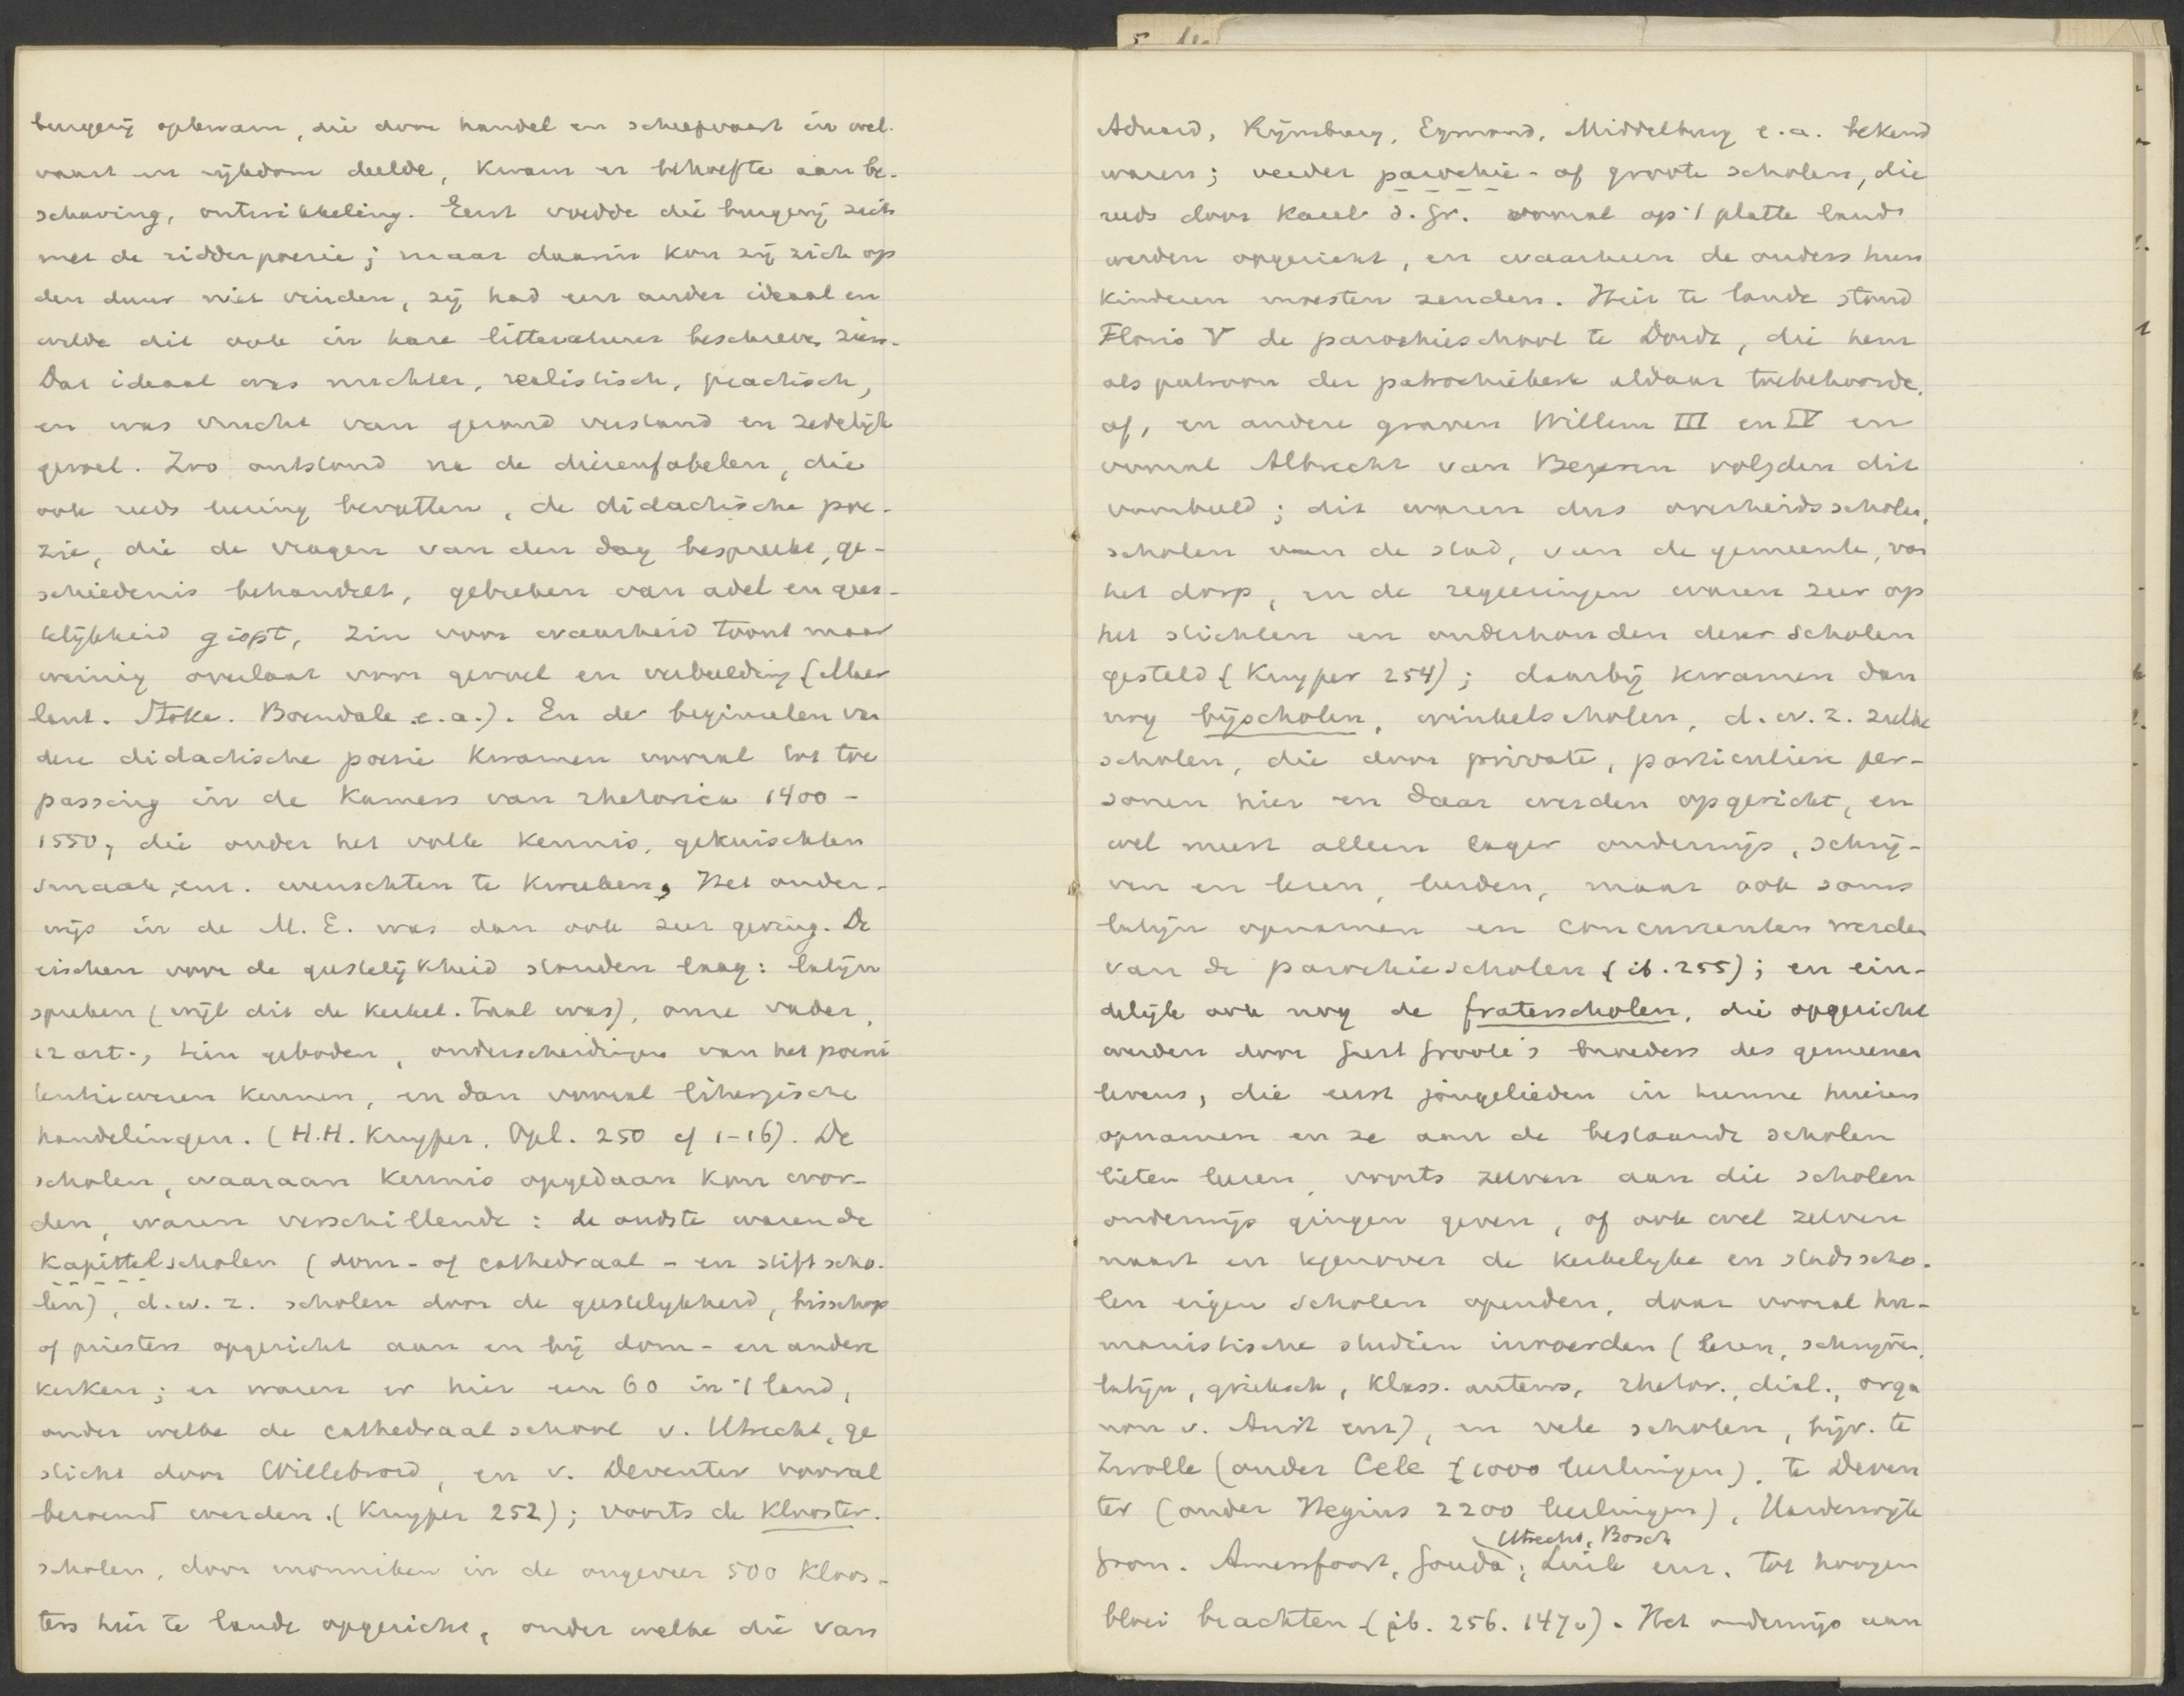 burgerij opkwam, die door handel en scheepvaart in wel-
vaart en rijkdom deelde, kwam er behoefte aan be-
schaving, ontwikkeling. Eerst voedde die burgerij zich
met de ridderpoesie; maar daarin kon zij zich op
den duur niet vinden, zij had een ander ideaal en
wilde dit ook in hare litteratuur beschreven zien.
Dat ideaal was nuchter, realistisch, practisch,
en was vrucht van gezond verstand en zedelijk
gevoel. Zoo ontstond na de dierenfabelen, die
ook reeds leering bevatten, de didactische poe-
zie, die de vragen van den dag bespreekt, ge-
schiedenis behandelt, gebreken van adel en gees-
telijkheid gispt, zin voor waarheid toont maar
weinig overlaat voor gevoel en verbeelding (Maer
lant. Stoke. Boendale e.a.). En de beginselen van
deze didactische poesie kwamen vooral tot toe
passing in de Kamers van rhetorica 1400-
1550, die onder het volk kennis, gekuischten
smaak, enz. wenschten te kweeken. Het onder-
wijs in de M. E. was dan ook zeer gering. De
eischen voor de geestelijkheid stonden laag: latijn
spreken (wijl dit de kerkel. taal was), onze vader,
12 art., tien geboden, onderscheidingen van het poeni
tentiewezen kennen, en dan vooral liturgische
handelingen. (H.H. Kuyper, Opl. 250 cf 1-16). De
scholen, waaraan kennis opgedaan kon wor-
den, waren verschillende: de oudste waren de
Kapittelscholen (dom- of cathedraal- en stiftscho-
len), d.w.z. scholen door de geestelijkheid, bisschop
of priesters opgericht aan en bij dom- en andere
kerken; er waren er hier een 60 in 't land,
onder welke de cathedraalschool v. Utrecht, ge
sticht door Willebrord, en v. Deventer vooral
beroemd werden. (Kuyper 252); voorts de Klooster-
scholen, door monniken in de ongeveer 500 kloos-
ters hier te lande opgericht, onder welke die van
Aduard, Rijnsburg, Egmond, Middelburg e.a. bekend
waren; verder parochie- of groote scholen, die
reeds door Karel d. Gr. vooral op 't platte land
werden opgericht, en waarheen de ouders hun
kinderen moesten zenden. Hier te lande stond
Floris V de parochieschool te Dordt, die hem
als patroon der patrochiekerk aldaar toebehoorde,
af, en andere graven Willem III en IV en
vooral Albrecht van Beyeren volgden dit
voorbeeld; dit waren dus overheidsscholen,
scholen van de stad, van de gemeente, van
het dorp, en de regeeringen waren zeer op
het stichten en onderhouden dezer scholen
gesteld (Kuyper 254); daarbij kwamen dan
nog bijscholen, winkelscholen, d.w.z. zulke
scholen, die door private, particuliere per-
sonen hier en daar werden opgericht, en
wel meest alleen lager onderwijs, schrij-
ven en lezen, leerden, maar ook soms
latijn opnamen en concurrenten werden
van de parochiescholen (ib. 255); en ein-
delijk ook nog de fraterscholen, die opgericht
werden door Geert Groote's broeders des gemeenen
levens, die eerst jongelieden in hunne huizen
opnamen en ze aan de bestaande scholen
lieten leeren, voorts zelven aan die scholen
onderwijs gingen geven, of ook wel zelven
naast en tegenover de kerkelijke en stadsscho-
len eigen scholen openden, daar vooral hu-
manistische studiën invoerden (lezen, schrijven,
latijn, grieksch, klass. auteurs, rhetor., dial., orga
non v. Arist enz), en vele scholen, bijv. te
Zwolle (onder Cele ± 1000 leerlingen), te Deven
ter (onder Hegius 2200 leerlingen), Harderwijk
Utrecht, Bosch
Gron. Amersfoort, Gouda, Luik enz. tot hoogen
bloei brachten (ib. 256. 147v). Het onderwijs aan